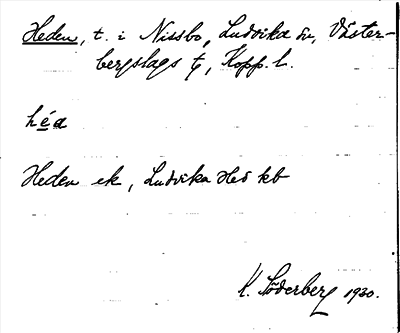 Heden, t. i Nissbo, Ludvika sn, Väster-
bergslags tg, Kopp. l.
héa
Heden ek, Ludvika Hed kb
K. Söderberg 1930.